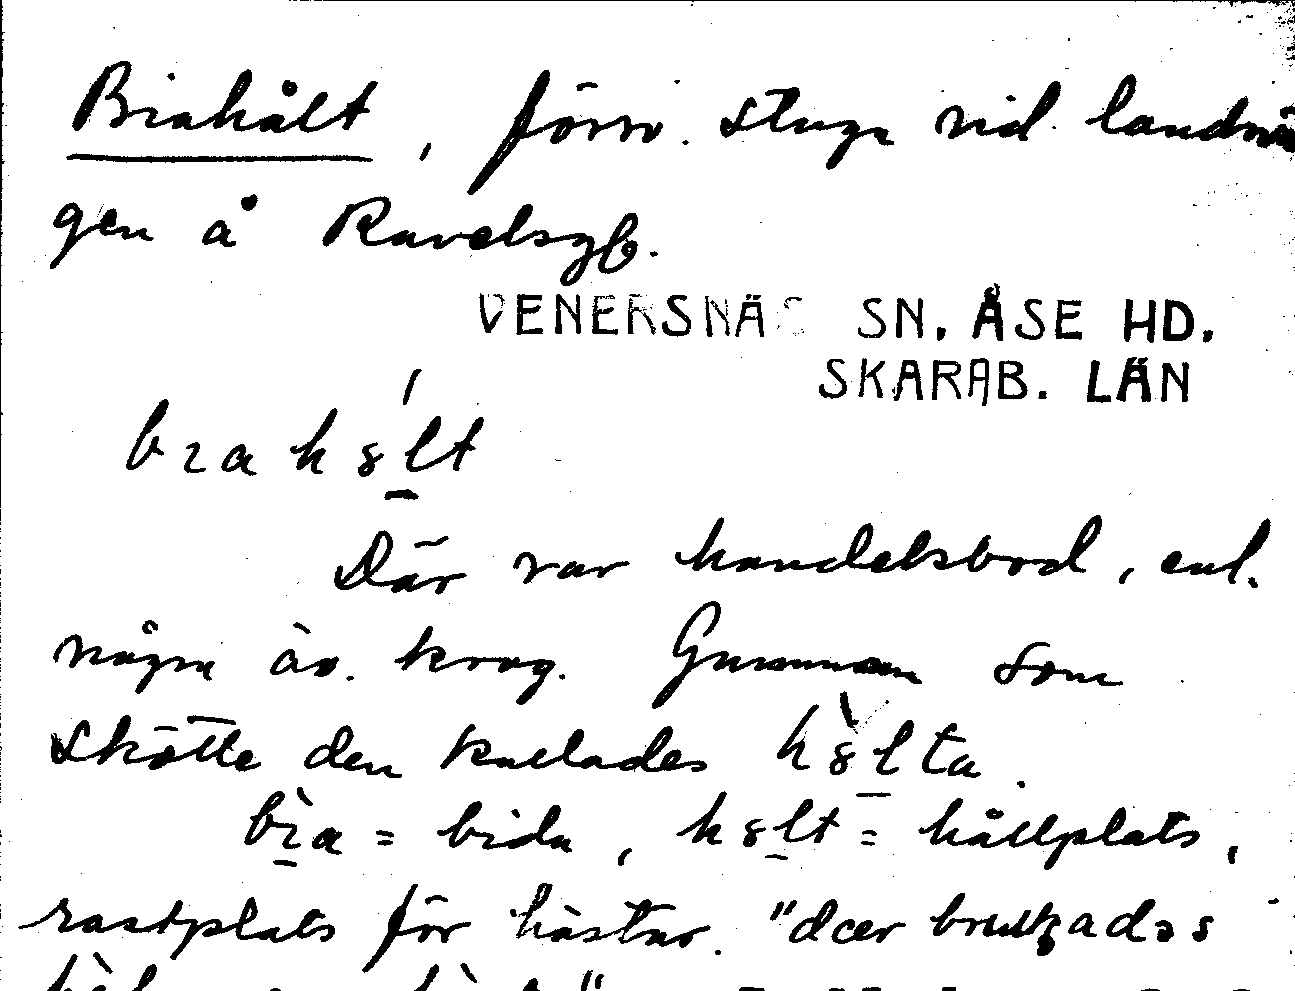 Biahålt, förr. stuga vid landsvä
gen å Ravelsgb.
VENERSNÄS SN. ÅSE HD.
SKARAB. LÄN
bɩahȣ́lt
Där var handelsbod, enl.
några äv. krog. Gumman som
skötte den kallades hȣ̀lta.
bɩ̀a = bida, hȣlt = hållplats,
rastplats för hästar. "dær brukades